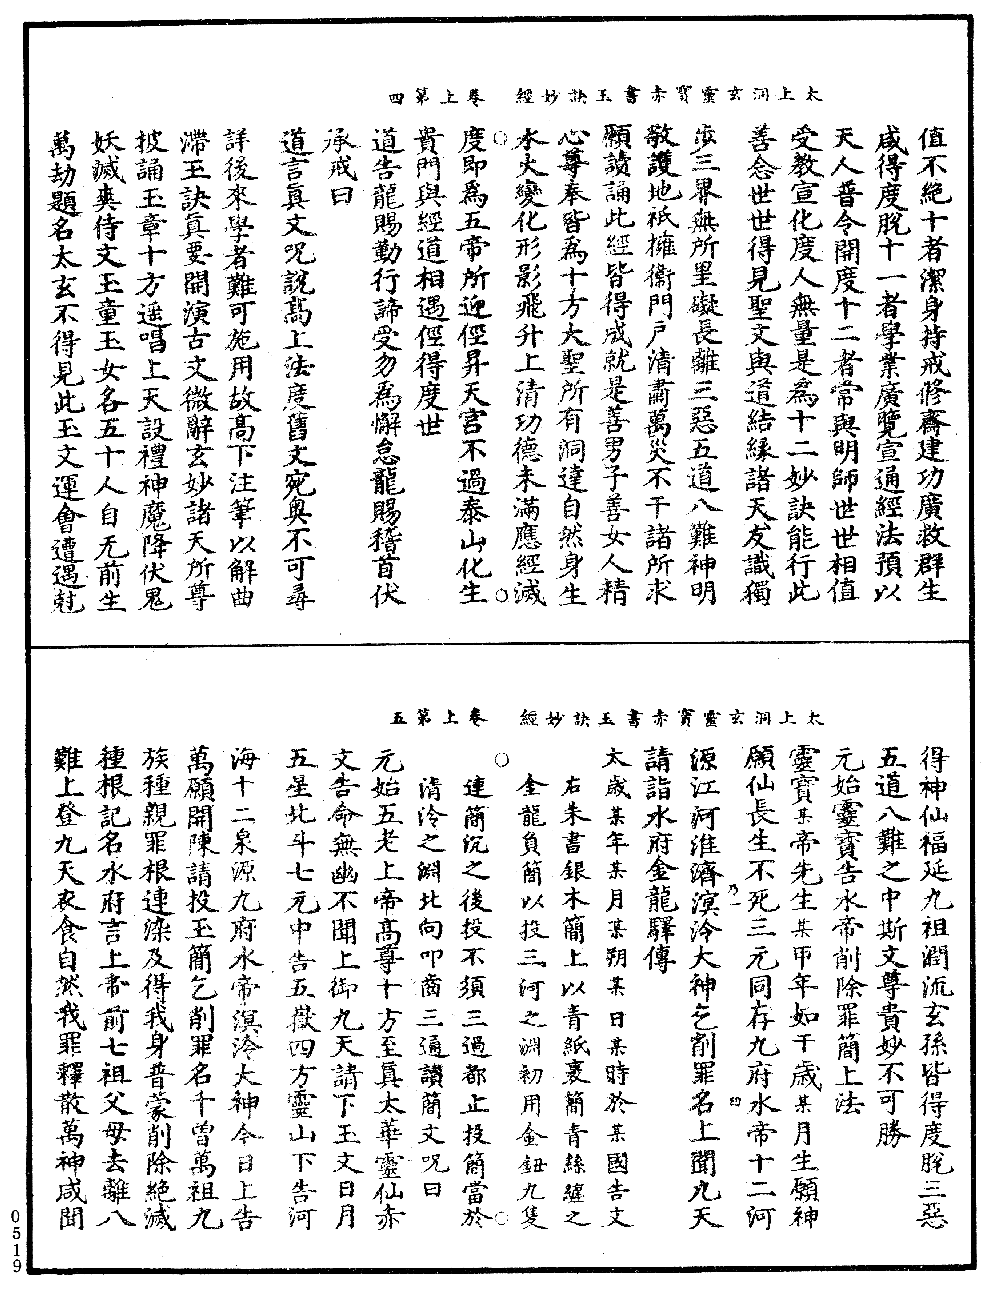 值不絕十者潔身持戒修齋建功廣救群生
咸得度脫十一者學業廣覽宣通經法預以
天人普令開度十二者常與明師世世相值
受教宣化度人無量是為十二妙訣能行此
善念世世得見聖文與道結緣諸天友識獨
步三界無所罣礙長離三惡五道八難神明
敬護地祇擁衛門戶清肅萬災不干諸所求
願讀誦此經皆得成就是善男子善女人精
心尊奉皆為十方大聖所有洞達自然身生
水火變化形影飛升上清功德未滿應經滅
太上洞玄靈寶赤書玉訣妙經 卷上第四
度即為五帝所迎徑昇天宮不過泰山化生
貴門與經道相遇徑得度世
道告龍賜勤行諦受勿為懈怠龍賜稽首伏
承戒曰
道言真文呪說高上法度舊文宛奧不可尋
詳後來學者難可施用故高下注筆以解曲
滯玉訣真要開演古文微辭玄妙諸天所尊
披誦玉章十方遙唱上天設禮神魔降伏鬼
妖滅爽侍文玉童玉女各五十人自无前生
萬劫題名太玄不得見此玉文運會遭遇尅
得神仙福延九祖潤流玄孫皆得度脫三惡
五道八難之中斯文尊貴妙不可勝
元始靈寶告水帝削除罪簡上法
靈寶某帝先生某甲年如干歲某月生願神
願仙長生不死三元同存九府水帝十二河
源江河淮濟溟泠大神乞削罪名上聞九天
請詣水府金龍驛傳
太歲某年某月某朔某日某時於某國告文
右朱書銀木簡上以青紙裹簡青絲纏之
金龍負簡以投三河之淵初用金鈕九隻
太上洞玄靈寶赤書玉訣妙經 卷上第五
連簡沉之後投不須三過都止投簡當於
清泠之淵北向叩齒三通讀簡文呪曰
元始五老上帝高尊十方至真太華靈仙赤
文告命無幽不聞上御九天請下玉文日月
五星北斗七元中告五嶽四方靈山下告河
海十二泉源九府水帝溟泠大神今日上告
萬願開陳請投玉簡乞削罪名千曾萬祖九
族種親罪根連染及得我身普蒙削除絕滅
種根記名水府言上帝前七祖父母去離八
難上登九天衣食自然我罪釋散萬神咸聞
0519